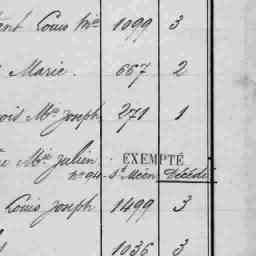 Louis Mie 1099 3
Marie. 667 2
Mie Joseph 271 1
Mie Julien EXEMPTÉ
no 94 St Méen Décédé
Louis Joseph 1499 3
1036 3